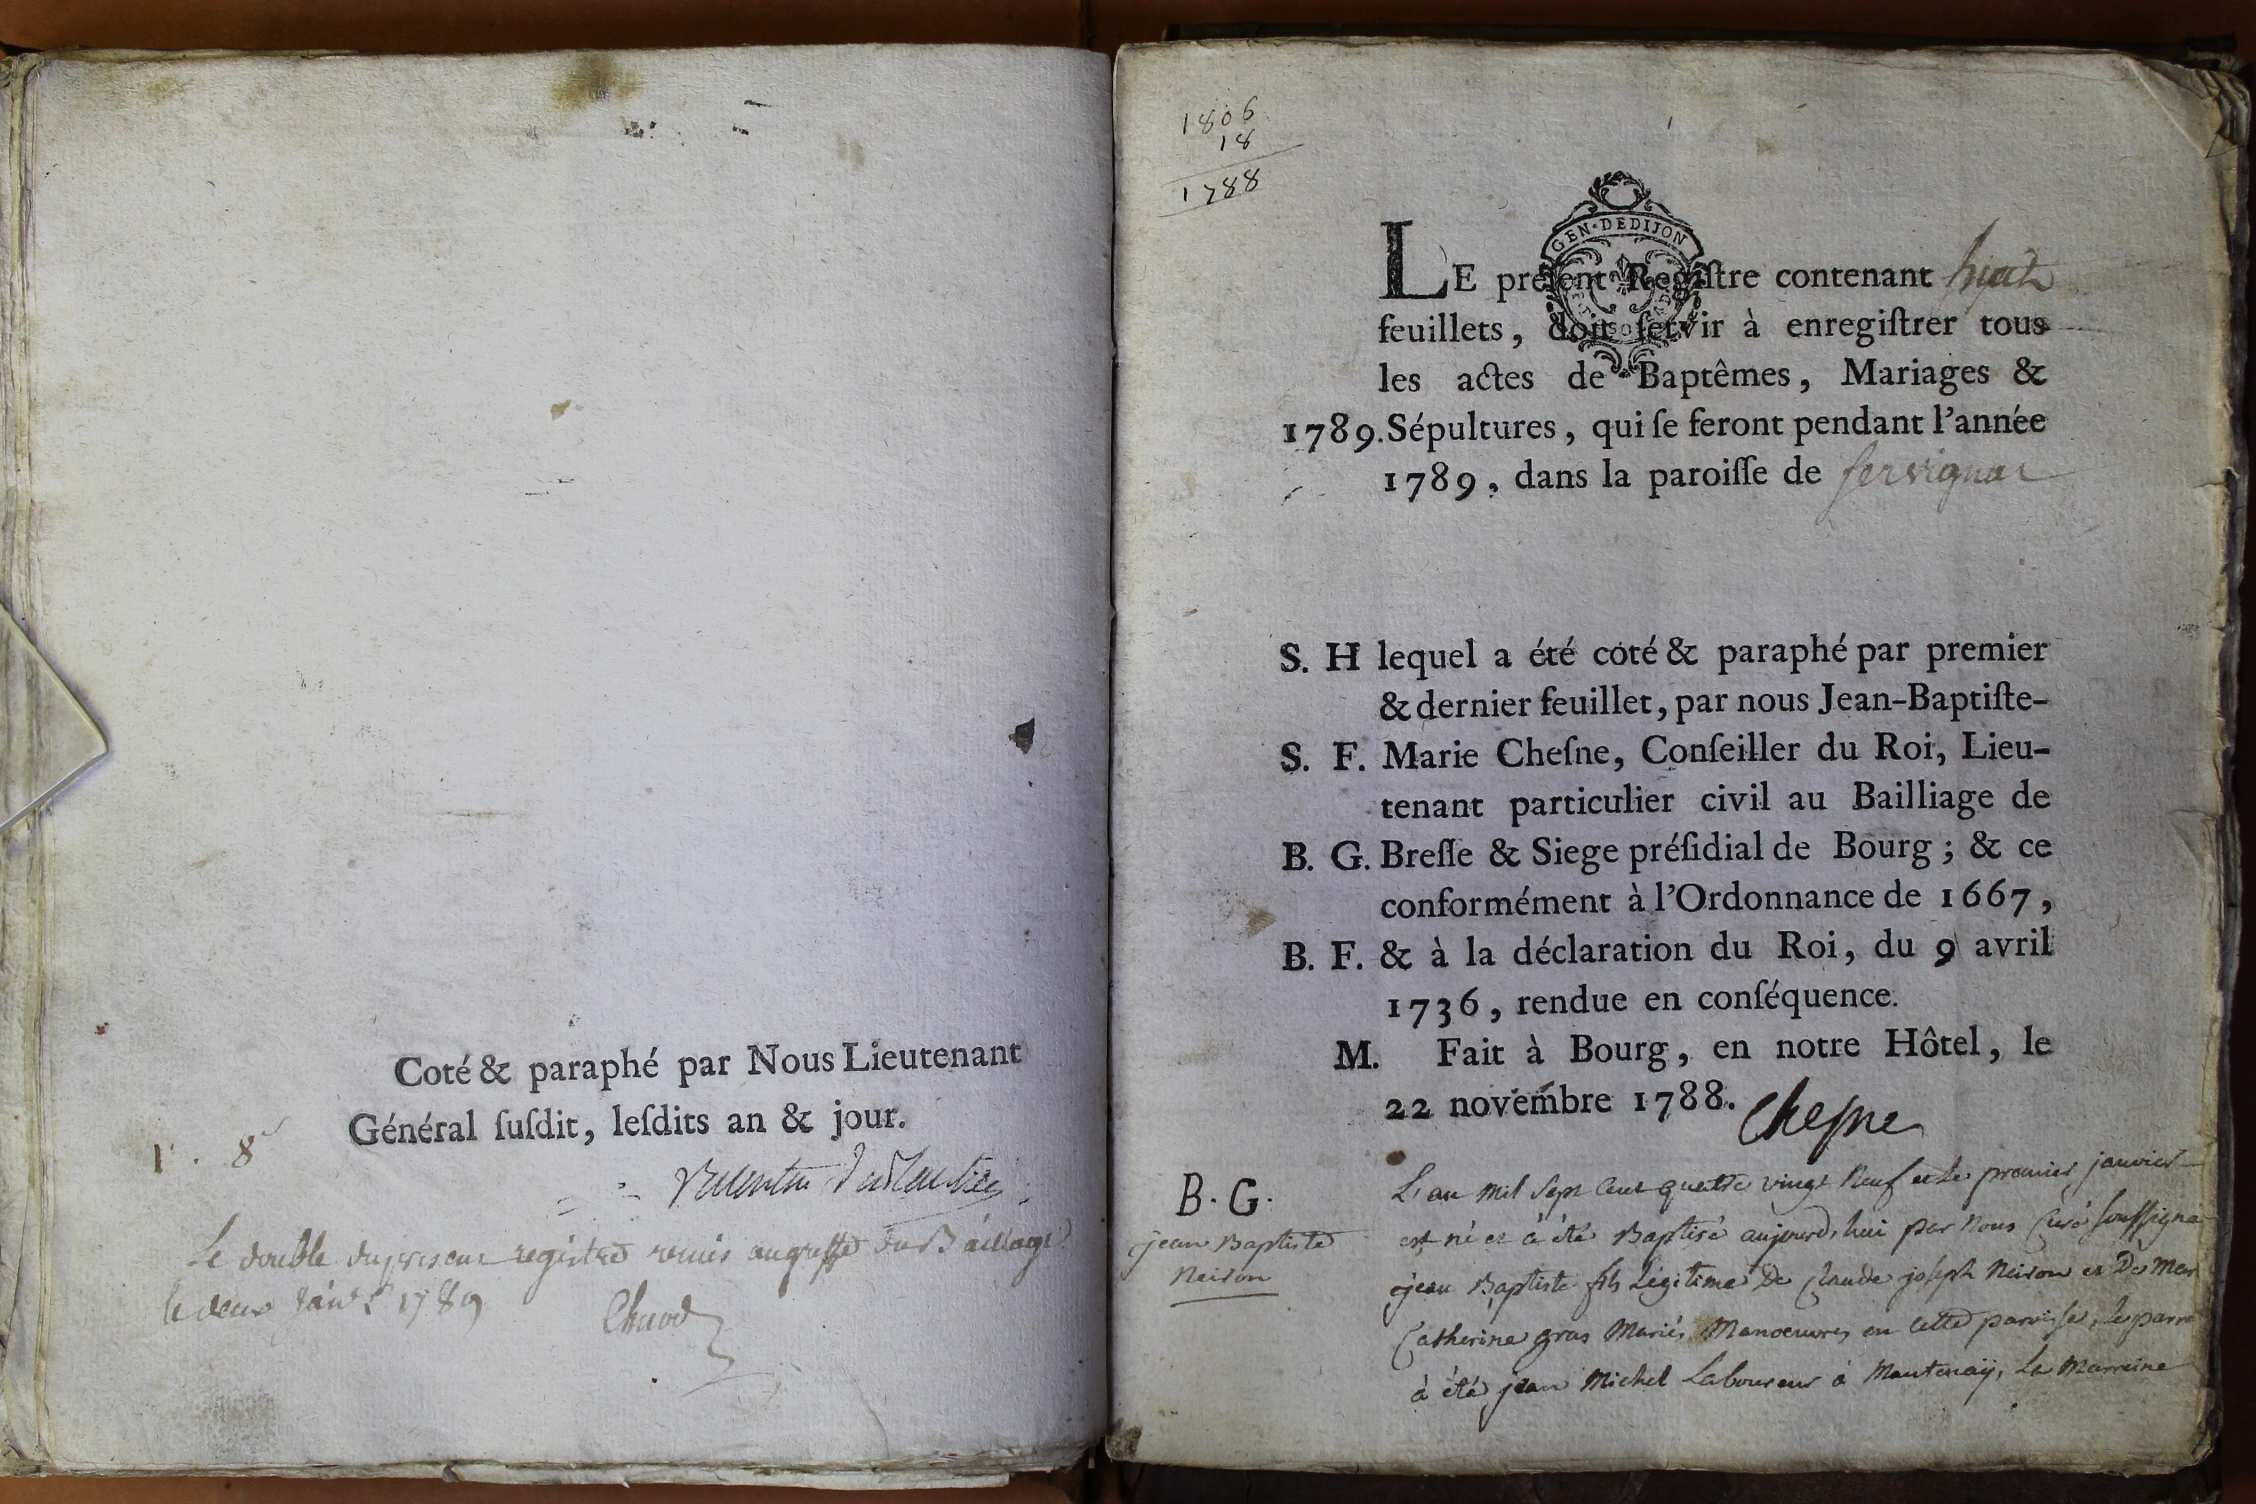 Coté & paraphé par Nous Lieutenant
Général ſuſdit, leſdits an & jour.
1. 8
Le double du present registre remis au greffe du Bailliage
le deux Janv. 1789
1806
18
1788
GEN. DE DIJON
LE préſent Regiſtre contenant huit
feuillets, doit ſervir à enregiſtrer tous
les actes de Baptêmes, Mariages &
1789. Sépultures, qui ſe feront pendant l'année
1789, dans la paroiſſe de ſervignat
S. H lequel a été coté & paraphé par premier
& dernier feuillet, par nous Jean-Baptiſte-
S. F. Marie Cheſne, Conſeiller du Roi, Lieu-
tenant particulier civil au Bailliage de
B. G. Breſſe & Siege préſidial de Bourg ; & ce
conformément à l'Ordonnance de 1667,
B. F. & à la déclaration du Roi, du 9 avril
1736, rendue en conſéquence.
M. Fait à Bourg, en notre Hôtel, le
22 novembre 1788. Cheſne
B. G.
jean Baptiste
Neiron
L'an mil sept cent quattre vingt neuf et le premier janvier
est né et à été Baptisé aujourd'hui par nous Curé soussigné
jean Baptiste fils Légitime De Claude joseph Neiron et De Mar
Catherine gras Mariés Manoeuvres en cette paroisse, le parr
à été jean Michel Laboureur à Mantenaÿ, La Marreine